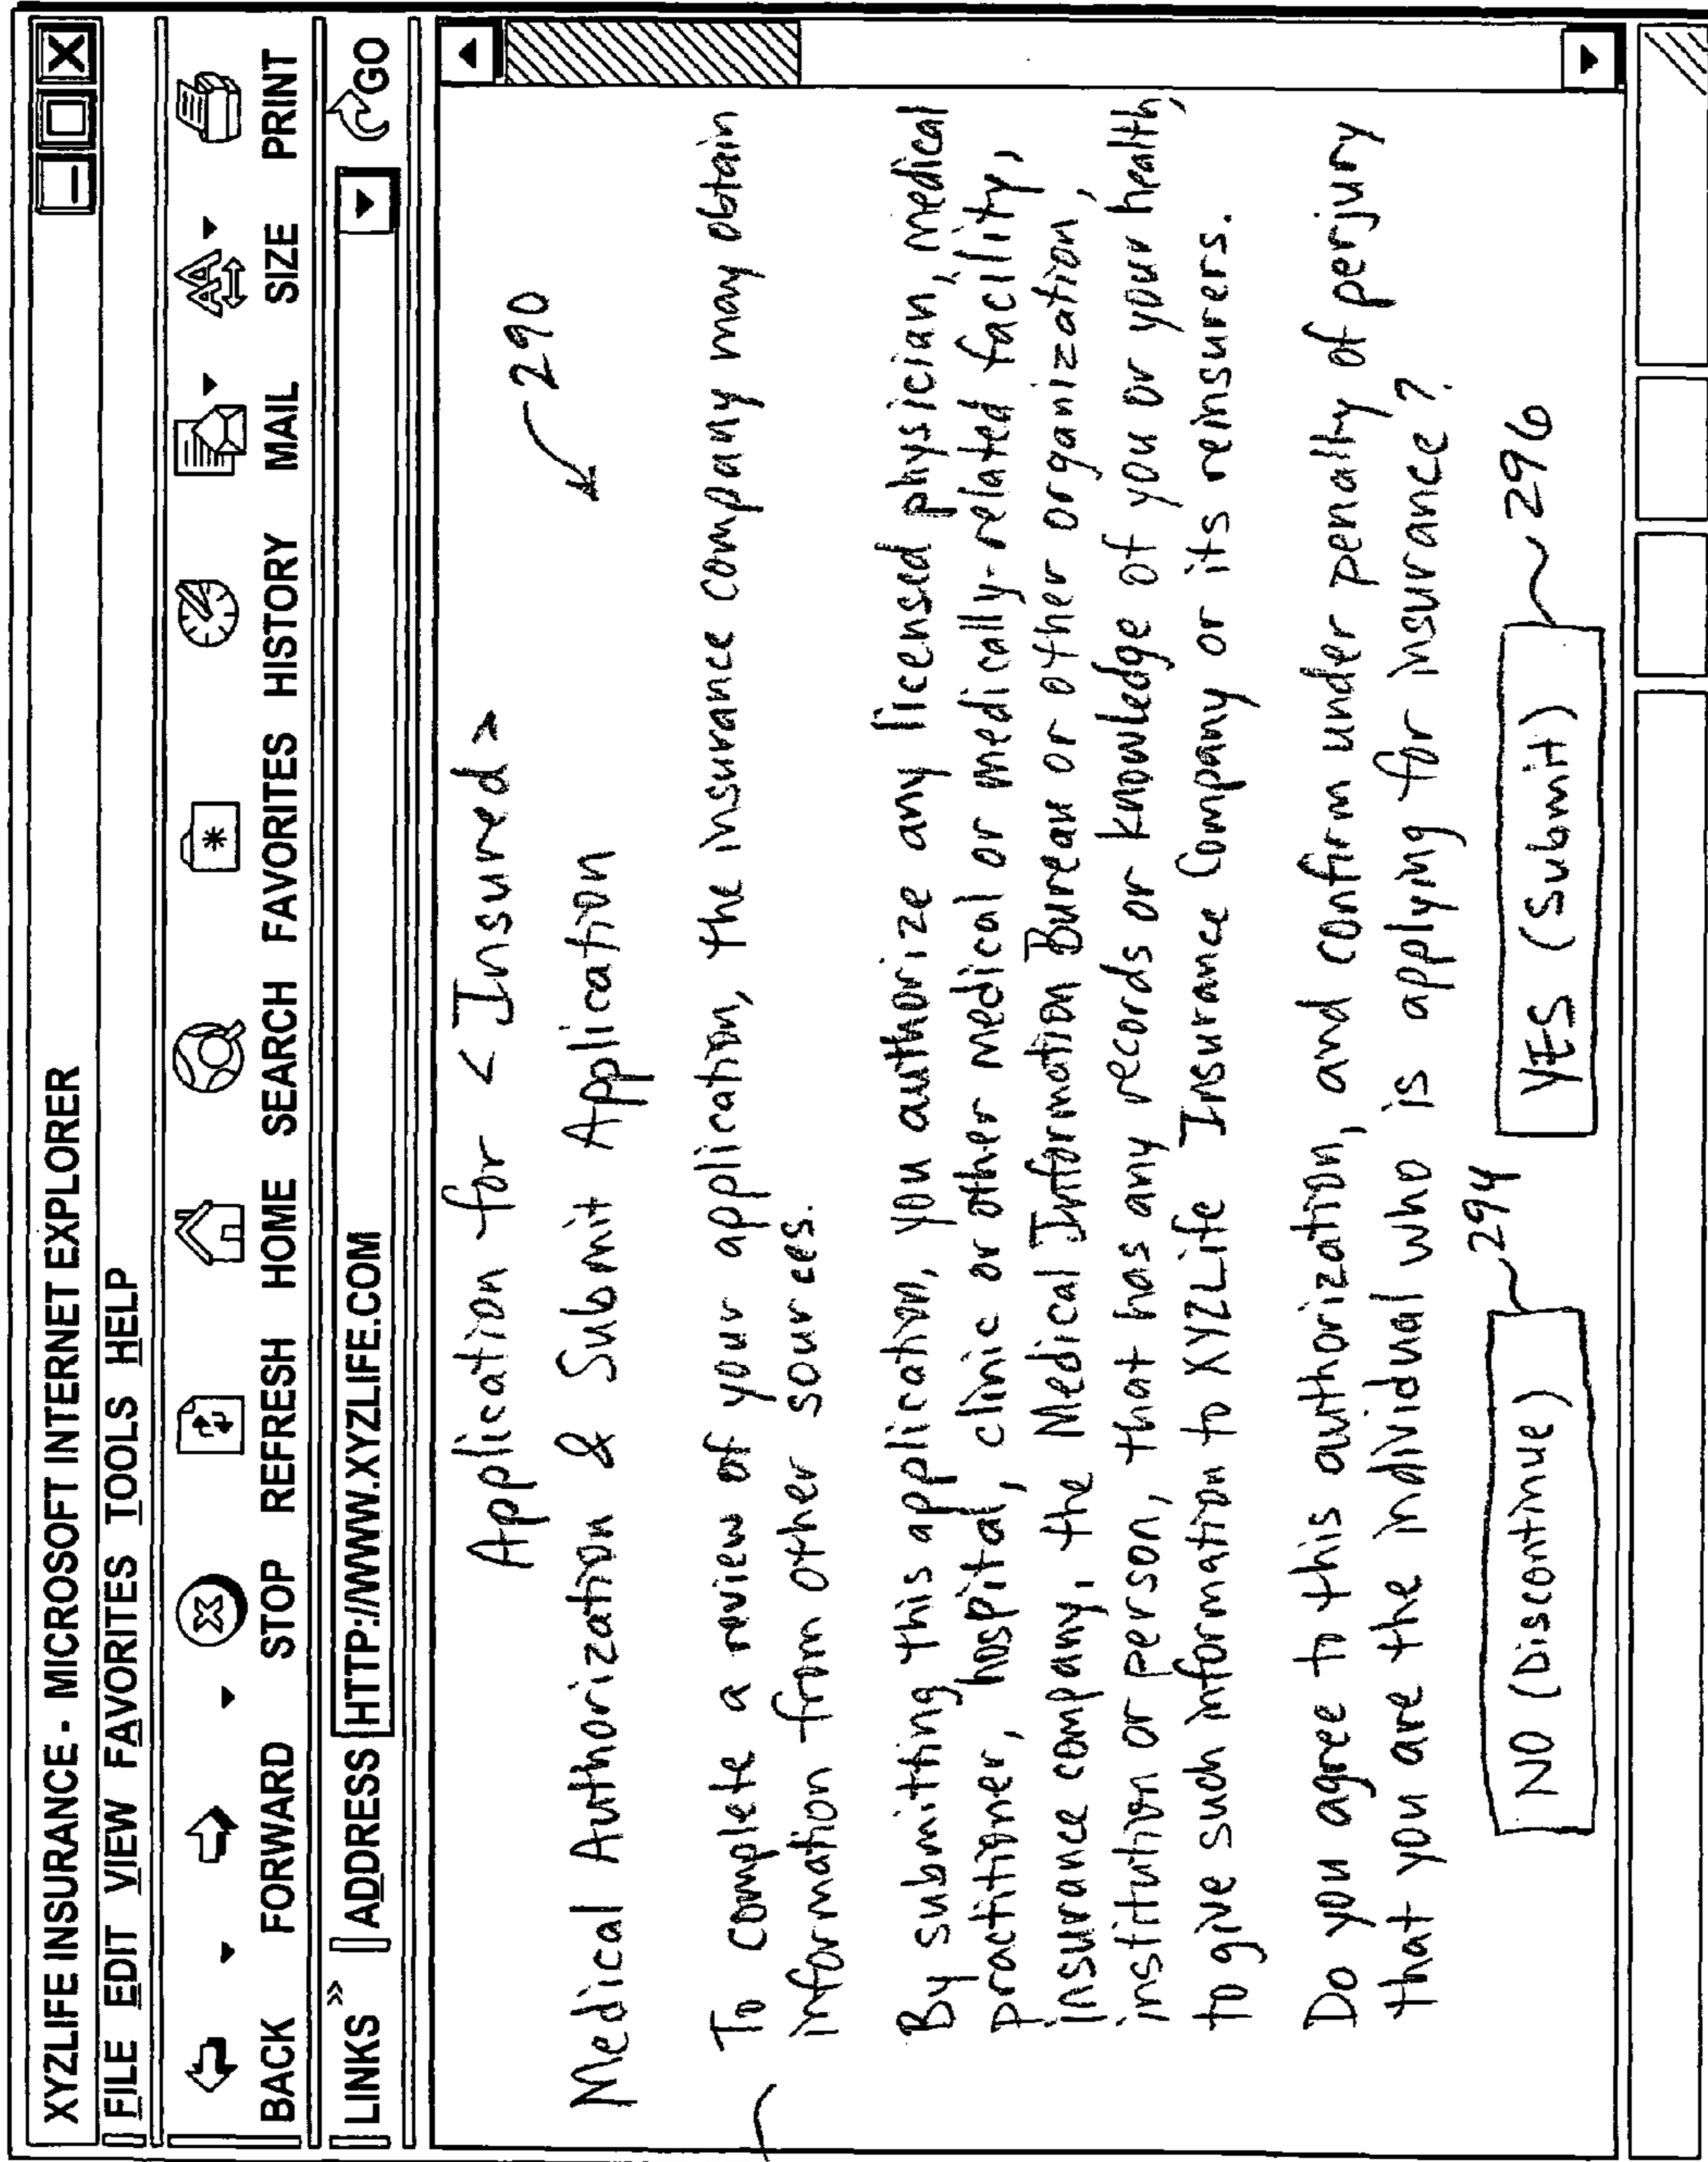 XYZLIFE INSURANCE - MICROSOFT INTERNET EXPLORER
FILE EDIT VIEW FAVORITES TOOLS HELP
BACK FORWARD STOP REFRESH HOME SEARCH FAVORITES HISTORY MAIL SIZE PRINT
LINKS » ADDRESS HTTP://WWW.XYZLIFE.COM GO
Application for < Insured >
Medical Authorization & Submit Application
290
To complete a review of your application, the insurance company may obtain
information from other sources.
By submitting this application, you authorize any licensed physician, medical
practitioner, hospital, clinic or other medical or medically-related facility,
insurance company, the Medical Information Bureau or other organization,
institution or person, that has any records or knowledge of you or your health,
to give such information to XYZLife Insurance Company or its reinsurers.
Do you agree to this authorization, and confirm under penalty of perjury
that you are the individual who is applying for insurance?
NO (Discontinue) 294 YES (Submit) 296